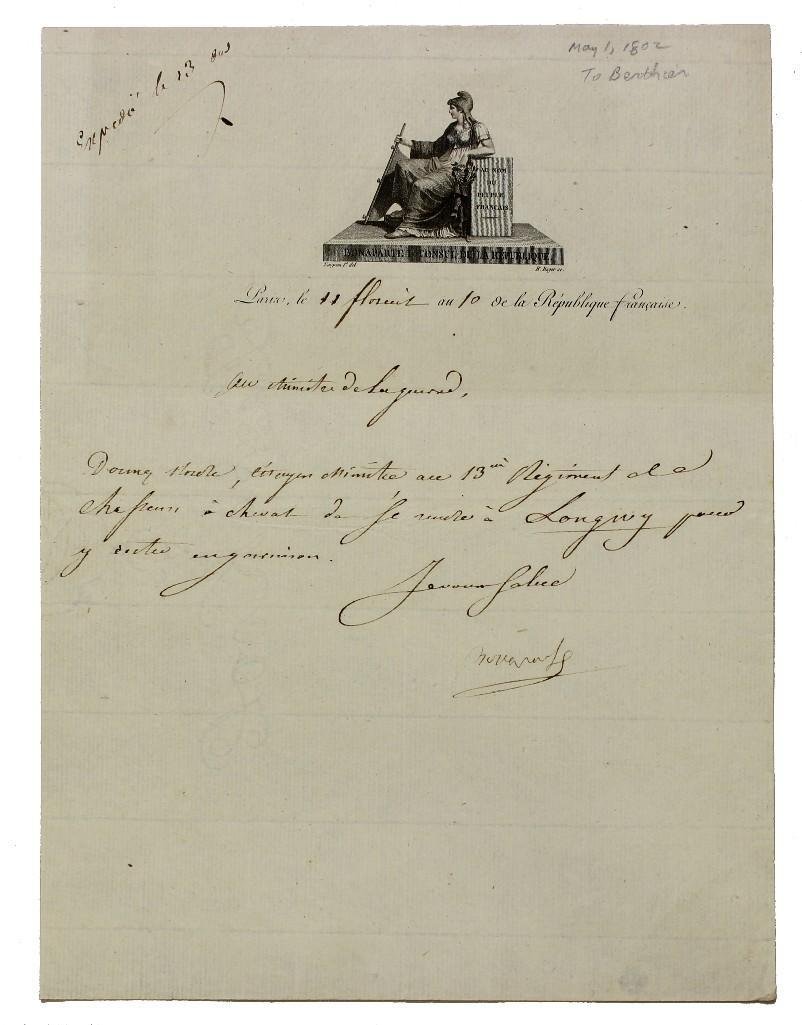 Expédié le 13 dud
May 1, 1802
To Berthier
AU NOM
DU
PEUPLE
FRANÇAIS.
BONAPARTE 1er CONSUL DE LA RÉPUBLIQUE
Paris, le 11 floreal an 10 de la République française.
Au Ministre de la guerre,
Donnez l'ordre, Citoyen Ministre au 13me Régiment de
Chasseurs à cheval de se rendre à Longwy pour
y rester en garnison.
Je vous salue
Bonaparte